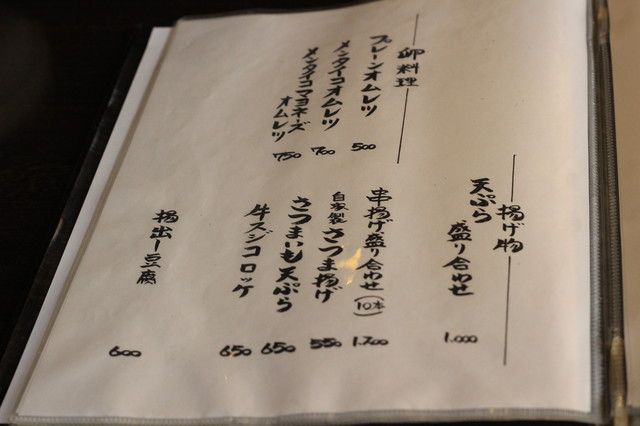 卵料理
プレーンオムレツ 500
メンタイコオムレツ 700
メンタイコマヨネーズ
オムレツ 750
揚げ物
天ぷら
盛り合わせ 1.000
串揚げ盛り合わせ(10本) 1.700
自家製さつま揚げ 550
さつまいも天ぷら 650
牛スジコロッケ 650
揚出し豆腐 600